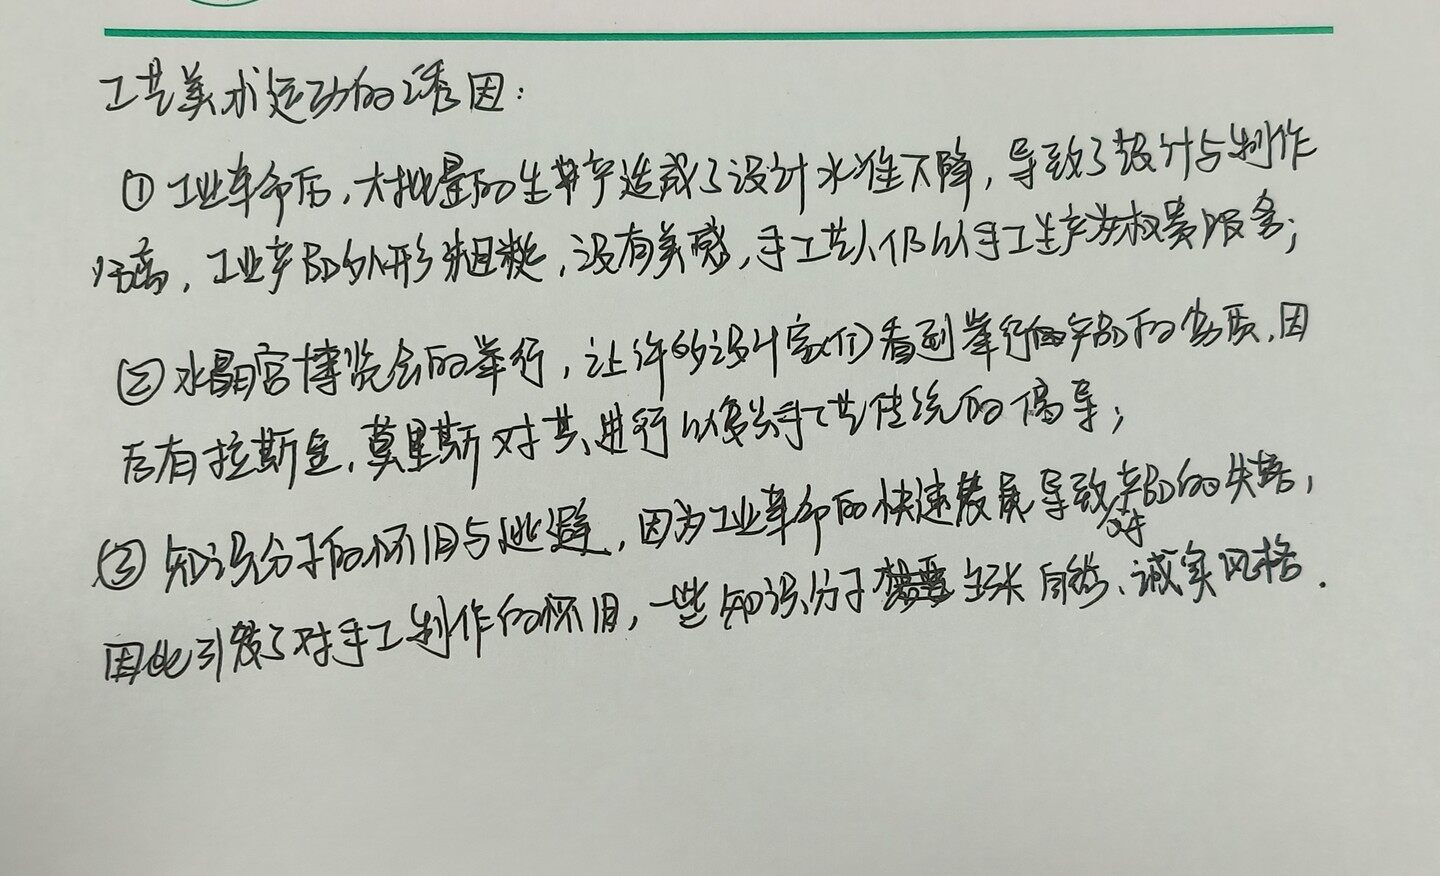 工艺美术运动的诱因：
①工业革命后，大批量的生产造成了设计水准下降，导致了设计与制作
分离，工业产品外形粗糙，没有美感，手工艺人仍以手工生产为权贵服务；
②水晶宫博览会的举行，让许多设计家们看到举行产品下的劣质，因
后有拉斯金，莫里斯对其进行以复兴手工艺传统的倡导；
③知识分子的怀旧与逃避，因为工业革命的快速发展导致产品的失落，
因此引发了对手工制作的怀旧，一些知识分子主张自然、诚实风格．